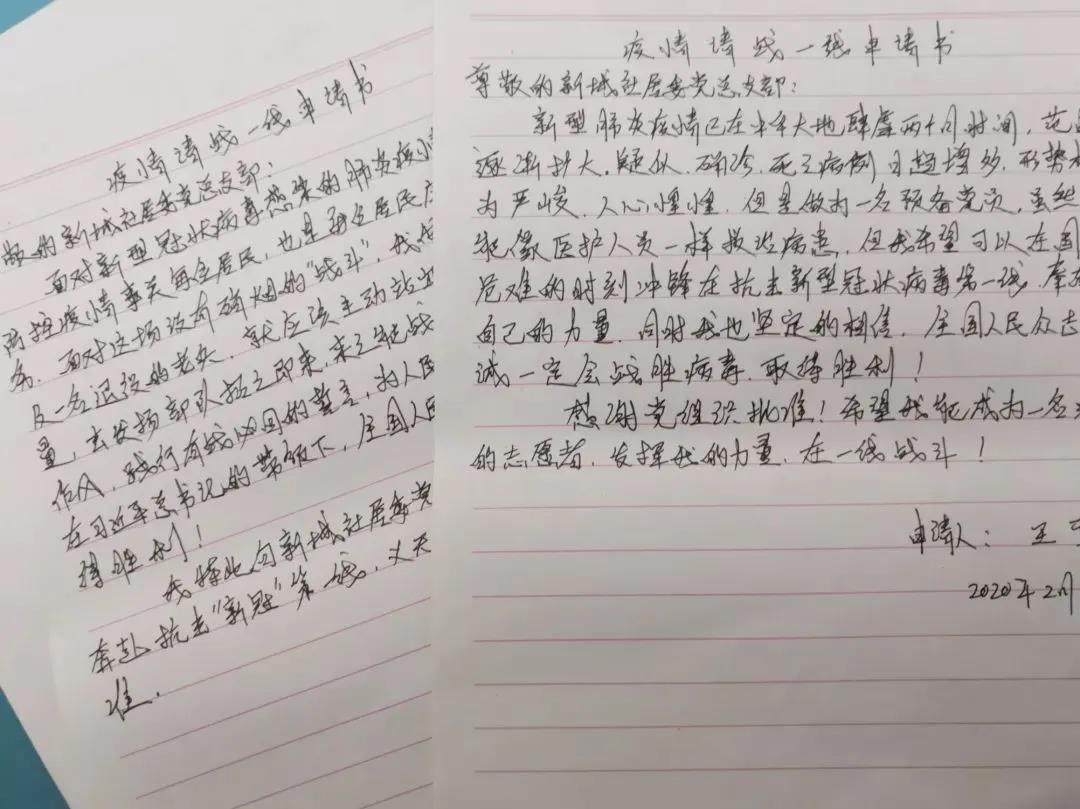 疫情请战一线申请书
敬的新城社居委党总支部：
面对新型冠状病毒感染的肺炎疫情
防控疫情事关每全居民，也是每全居民应
务．面对这场没有硝烟的"战斗"，我作
及一名退役的老兵．就应该主动站出
量，去发扬部队招之即来，来之能战
作风，践行有战必回的誓言，为人民
在习近平总书记的带领下，全国人民
得胜利！
我特此向新城社居委党
奔赴抗击"新冠"第一线，义无
准．
疫情请战一线申请书
尊敬的新城社居委党总支部：
新型肺炎疫情已在中华大地肆虐两个月时间，范围
逐渐扩大．疑似、确诊、死亡病例日趋增多，形势
为严峻，人心惶惶，但是做为一名预备党员，虽然
能像医护人员一样救治病患，但我希望可以在国
危难的时刻冲锋在抗击新型冠状病毒第一线，奉献
自己的力量．同时我也坚定的相信，全国人民众志
诚一定会战胜病毒，取得胜利！
感谢党组织批准！希望我能成为一名
的志愿者，发挥我的力量，在一线战斗！
申请人：王
2020年2月